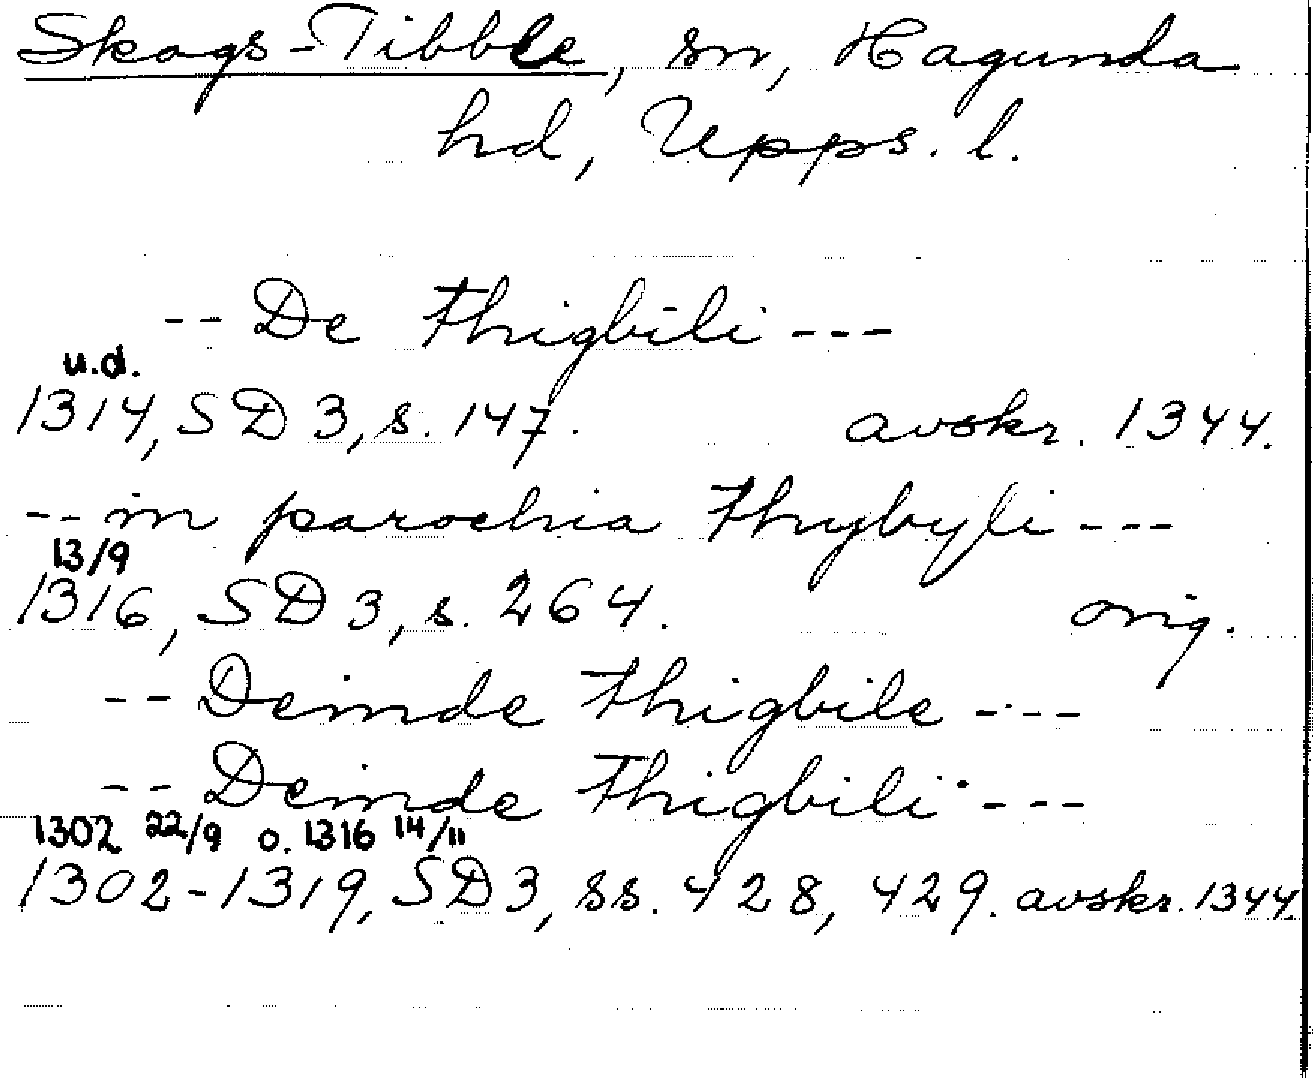 Skogs-Tibble, sn, Hagunda
hd, Upps. l.
-- De Thigbili ---
u.d.
1314, SD 3, s. 147. avskr. 1344.
-- in parochia Thybyli ---
13/9
1316, SD 3, s. 264. orig.
-- Deinde Thigbile ---
-- Deinde Thigbili ---
1302 22/9 o. 1316 14/11
1302-1319, SD 3, ss. 428, 429. avskr. 1344.